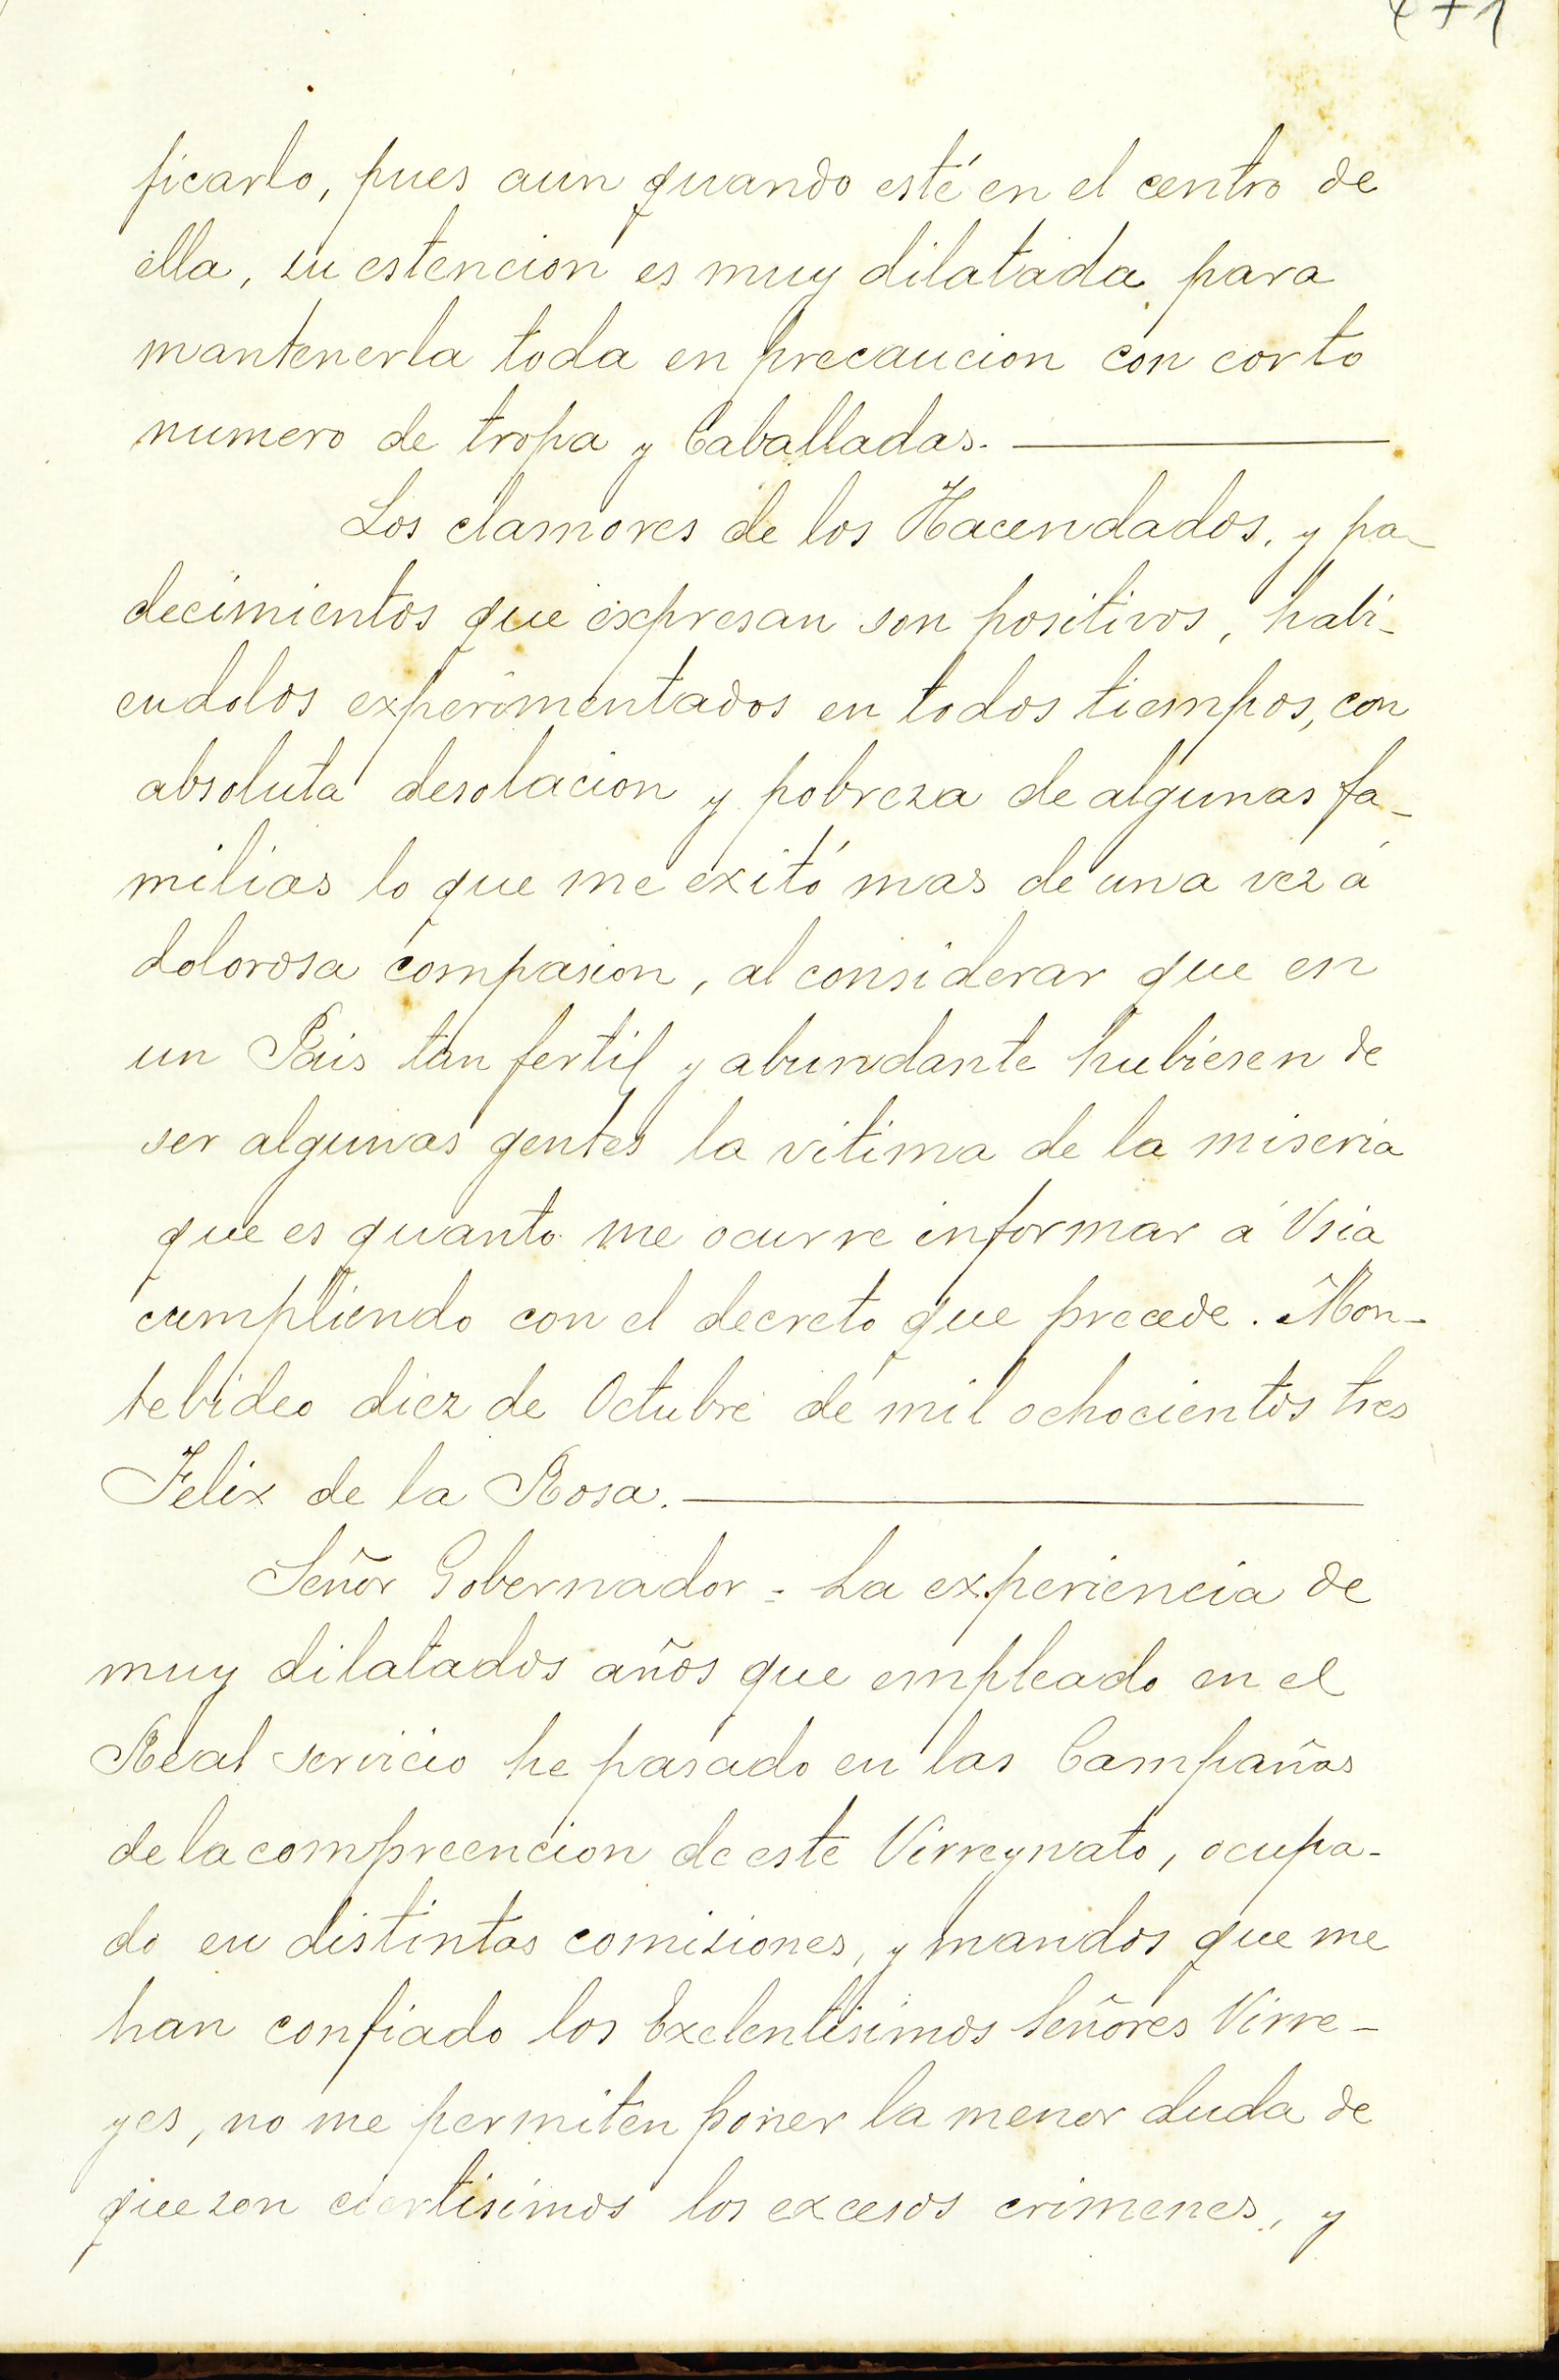 ficarlo, pues aun quando esté en el centro de
ella, su estencion es muy dilatada para
mantenerla toda en precaucion con corto
numero de tropa y Caballadas. —
Los clamores de los Hacendados, y pa-
decimientos que expresan son positivos, habi-
endolos experimentados en todos tiempos, con
absoluta desolacion y pobreza de algunas fa-
milias lo que me exitó mas de una vez á
dolorosa compasion, al considerar que en
un Pais tan fertil y abundante hubiesen de
ser algunas gentes la vitima de la miseria
que es quanto me ocurre informar á Vsia
cumpliendo con el decreto que precede. Mon-
tebideo diez de Octubre de mil ochocientos tres
Felix de la Rosa. —
Señor Gobernador = La experiencia de
muy dilatados años que empleado en el
Real servicio he pasado en las Campañas
de la compreencion de este Virreynato, ocupa-
do en distintas comisiones, y mandos que me
han confiado los Exelentisimos Señores Virre-
yes, no me permiten poner la menor duda de
que son ciertisimos los excesos crimenes, y